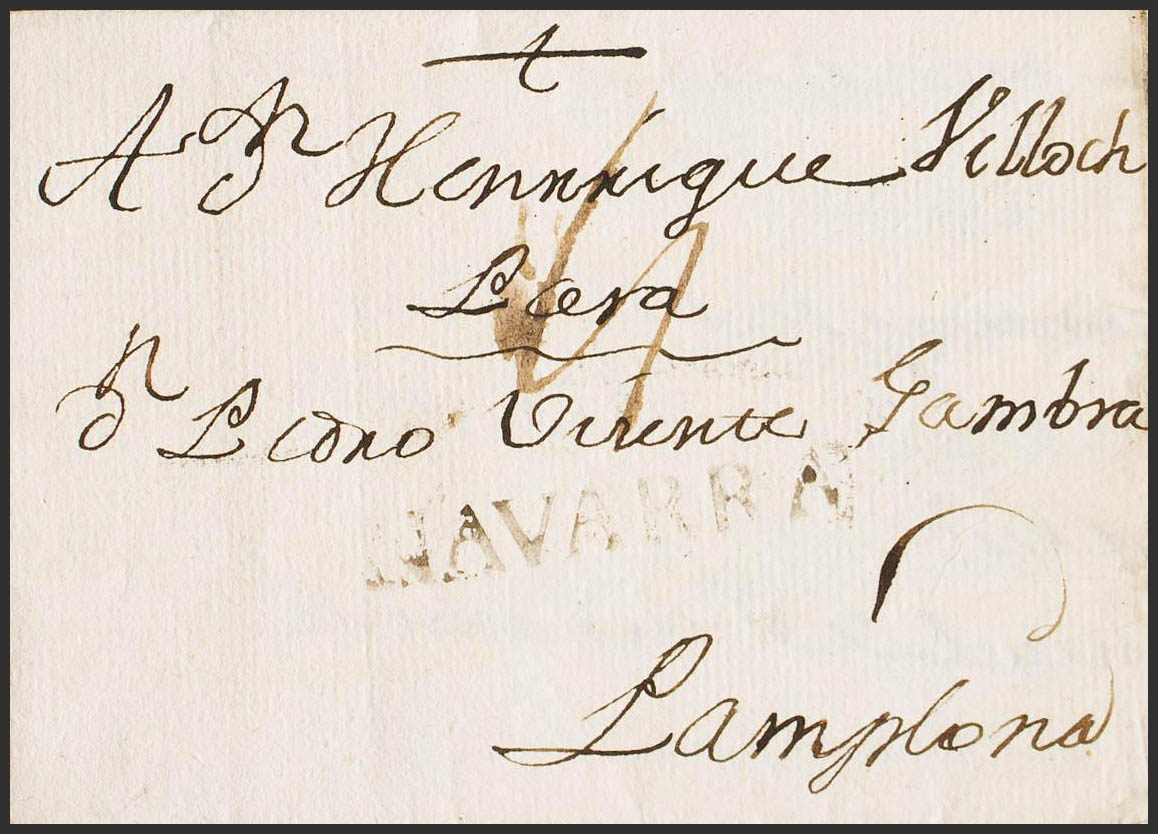 A Dn Henrrique Villoch
Pera
Dn Pedro Vizente Gambra
NAVARRA
Pamplona